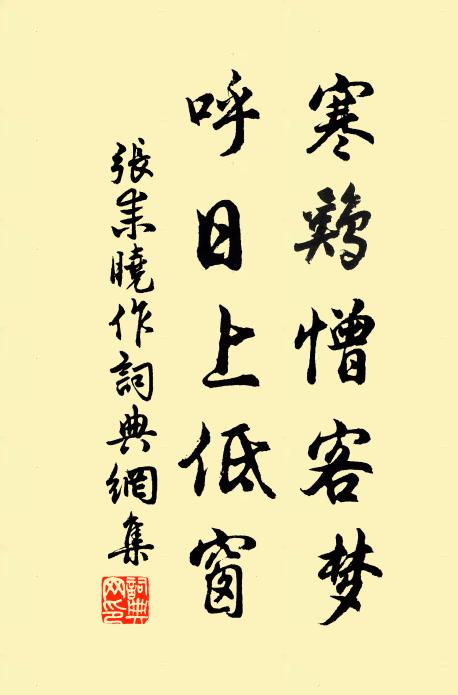 寒鷄憎客梦
呼日上低窗
張耒曉作詞典網集
詞典网印